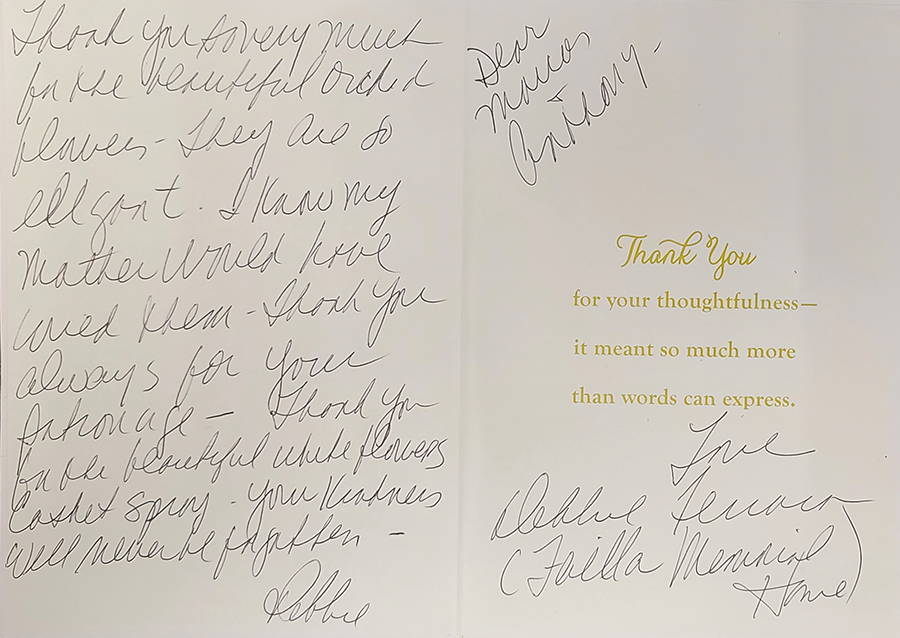 Thank you so very much
for the beautiful orchid
flowers - They are so
ellgant. I know my
Mother would have
loved them - Thank you
always for your
Patronage - Thank you
for the beautiful white flowers
Casket Spray - your kindness
well never be forgotten -
Debbie
Dear
Marcos
+
Anthony -
Thank You
for your thoughtfulness—
it meant so much more
than words can express.
Love
Debbie Ferraro
(Failla Memorial
Home)